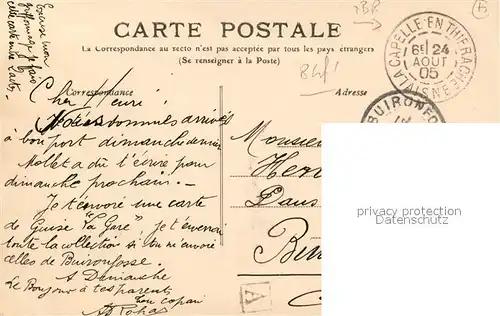 Excuse mon
griffonnage je fais
cette carte en
CARTE POSTALE
La Correspondance au recto n'est pas acceptée par tous les pays étrangers
(Se renseigner à la Poste)
Correspondance
Adresse
LA CAPELLE-EN-THIERACHE
6E 24
AOUT
05
AISNE
BUIRONFO
Cher Henri
Nous sommes arrivés
à bon port dimanche dernier
Mollet a dû t'écrire pour
dimanche prochain. —
Je t'envoie une carte
de Guise "la Gare" je t'enverrai
toute la collection si tu m'envoie
celles de Buironfosse.
A Dimanche
Le Bonjour à tes parents
Ton copain
Monsieur
Henr
Dans
Bui
A
privacy protection
watermark